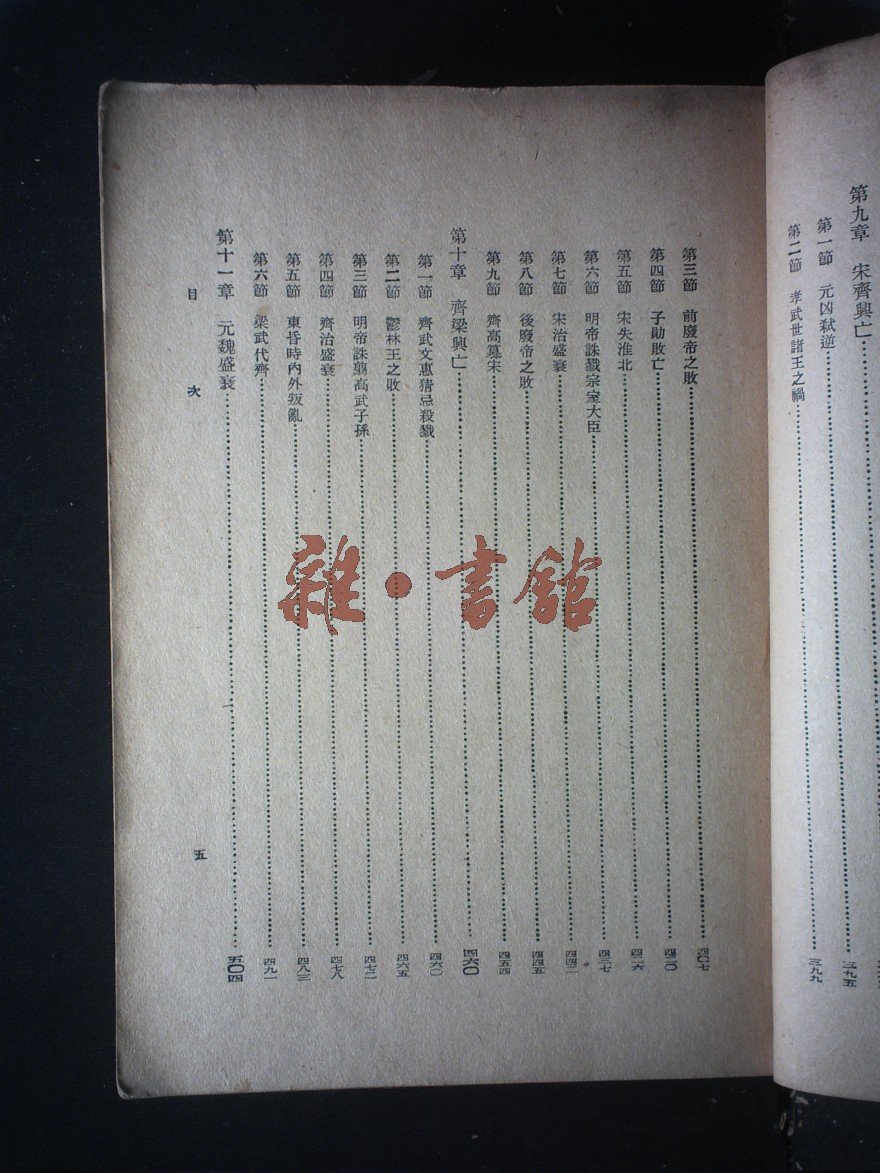 第九章 宋齊興亡
第一節 元凶弒逆 三九五
第二節 孝武世諸王之禍 三九九
第三節 前廢帝之敗 四〇七
第四節 子勛敗亡 四一〇
第五節 宋失淮北 四二六
第六節 明帝誅戮宗室大臣 四三七
第七節 宋治盛衰 四四二
第八節 後廢帝之敗 四四五
第九節 齊高篡宋 四五四
第十章 齊梁興亡 四六〇
第一節 齊武文惠猜忌殺戮 四六〇
第二節 鬱林王之敗 四六五
第三節 明帝誅翦高武子孫 四七二
第四節 齊治盛衰 四七八
第五節 東昏時內外叛亂 四八三
第六節 梁武代齊 四九一
第十一章 元魏盛衰 五〇四
目 次 五
雜·書館